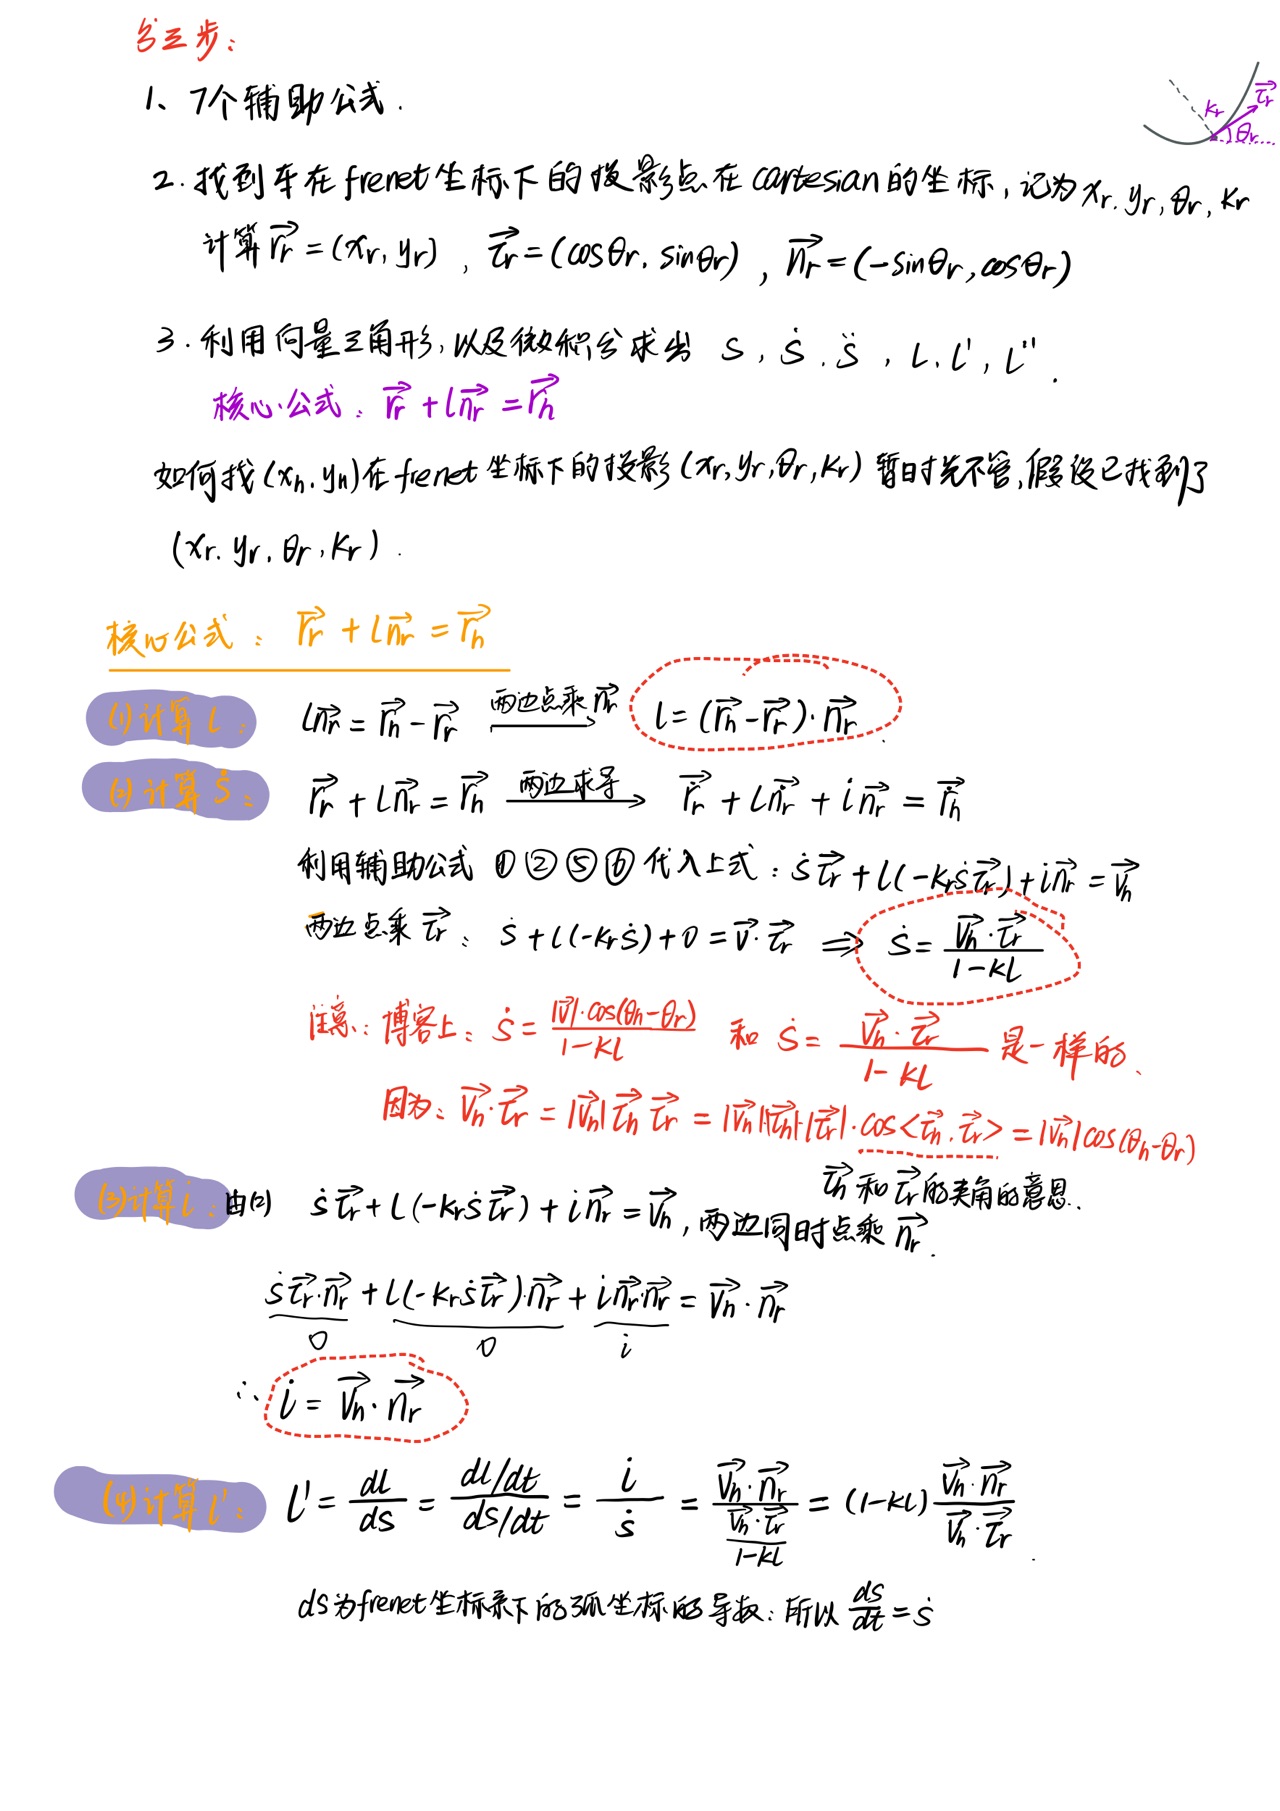 分三步：
1、7个辅助公式.
kr τr→ θr
2. 找到车在frenet坐标下的投影点在cartesian的坐标，记为xr, yr, θr, kr
计算 rr→ = (xr, yr) , τr→ = (cosθr, sinθr) , nr→ = (-sinθr, cosθr)
3. 利用向量三角形，以及微积分求出 s, ṡ, s̈, l, l', l''.
核心公式：rr→ + l nr→ = rh→
如何找(xh, yh)在frenet坐标下的投影(xr, yr, θr, kr)暂时先不管，假设已找到了
(xr, yr, θr, kr).
核心公式：rr→ + l nr→ = rh→
(1)计算 l： l nr→ = rh→ - rr→ 两边点乘 nr→ l = (rh→ - rr→)·nr→.
(2)计算 ṡ： rr→ + l nr→ = rh→ 两边求导 ṙr→ + l ṅr→ + l̇ nr→ = ṙh→
利用辅助公式 ①②⑤⑥代入上式：ṡ τr→ + l(-kr ṡ τr→) + l̇ nr→ = vh→
两边点乘 τr→： ṡ + l(-kr ṡ) + 0 = v→·τr→ ⇒ ṡ = (vh→·τr→)/(1-kl)
注意：博客上：ṡ = |v→|·cos(θh-θr)/(1-kl) 和 ṡ = (vh→·τr→)/(1-kl) 是一样的、
因为：vh→·τr→ = |vh→| τh→ τr→ = |vh→|·|τh→|·|τr→|·cos<τh→, τr→> = |vh→| cos(θh-θr)
τh→ 和 τr→ 的夹角的意思.
(3)计算 l̇： 由(2) ṡ τr→ + l(-kr ṡ τr→) + l̇ nr→ = vh→, 两边同时点乘 nr→.
ṡ τr→·nr→ + l(-kr ṡ τr→)·nr→ + l̇ nr→·nr→ = vh→·nr→
0 0 l̇
∴ l̇ = vh→·nr→
(4)计算 l'： l' = dl/ds = (dl/dt)/(ds/dt) = l̇/ṡ = (vh→·nr→)/((vh→·τr→)/(1-kl)) = (1-kl) (vh→·nr→)/(vh→·τr→).
ds为frenet坐标系下的弧坐标的导数：所以 ds/dt = ṡ